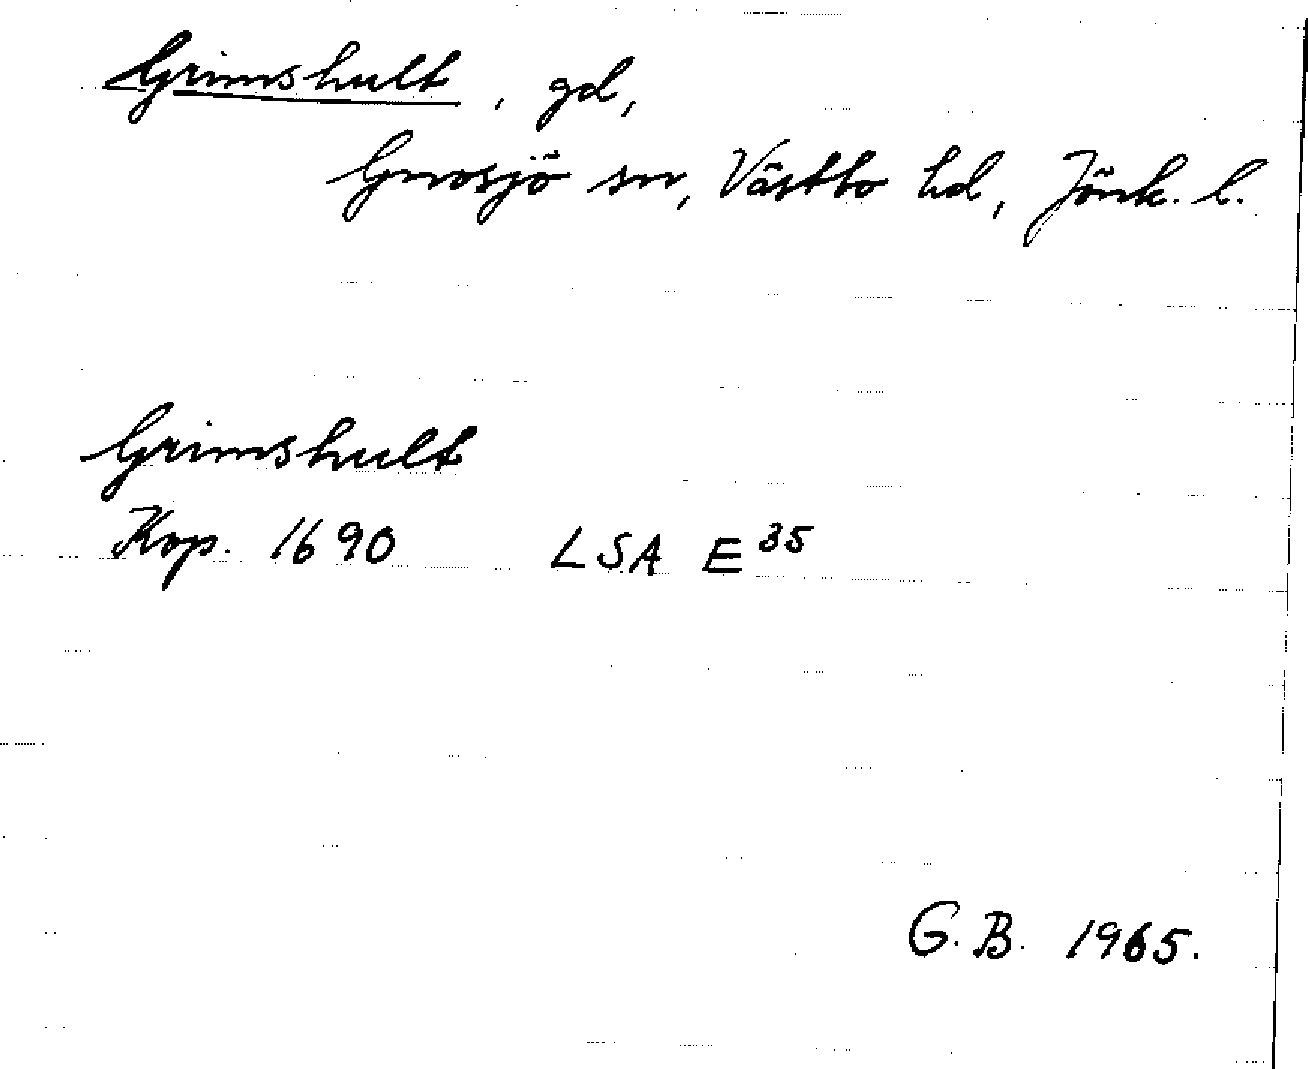 Grimshult, gd,
Gnosjö sn, Västbo hd, Jönk. l.
Grimshult
Kop. 1690 LSA E 35
G. B. 1965.